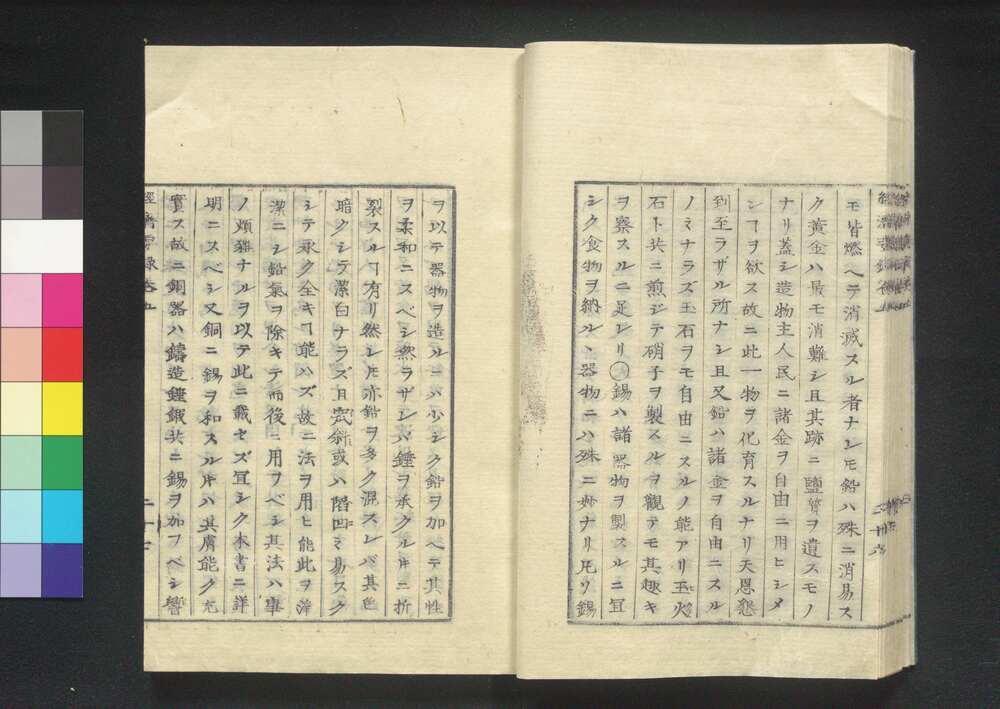 モ皆燃ヘテ消滅スル者ナレモ鉛ハ殊ニ消易ス
ク黄金ハ最モ消難シ且其跡ニ鹽質ヲ遺スモノ
ナリ蓋シ造物主人民ニ諸金ヲ自由ニ用ヒシメ
ンヿヲ欲ス故ニ此一物ヲ化育スルナリ天恩懇
到至ラザル所ナシ且又鉛ハ諸金ヲ自由ニスル
ノミナラズ玉石ヲモ自由ニスルノ能アリ玉火
石ト共ニ煎ジテ硝子ヲ製スルヲ觀テモ其趣キ
ヲ察スルニ足レリ○錫ハ諸器物ヲ製スルニ宜
シク食物ヲ納ルヽ器物ニハ殊ニ妙ナリ凡リ錫
ヲ以テ器物ヲ造ルニハ少シク鉛ヲ加ヘテ其性
ヲ柔和ニスベシ然ラザレバ鍾ヲ承クルキニ折
裂スルヿ有リ然レ𪜈亦鉛ヲ多ク混スレバ其色
暗クシテ潔白ナラズ且歪斜或ハ陷凹ミ易スク
シテ永ク全キヿ能ハズ故ニ法ヲ用ヒ能此ヲ洋
潔ニシ鉛氣ヲ除キテ而後ニ用フベシ其法ハ事
ノ煩雜ナルヲ以テ此ニ載セズ宜シク本書ニ詳
明ニスベシ又銅ニ錫ヲ和スルキハ其膚能ク充
實ス故ニ銅器ハ鑄造鍾鍛共ニ錫ヲ加フベシ響